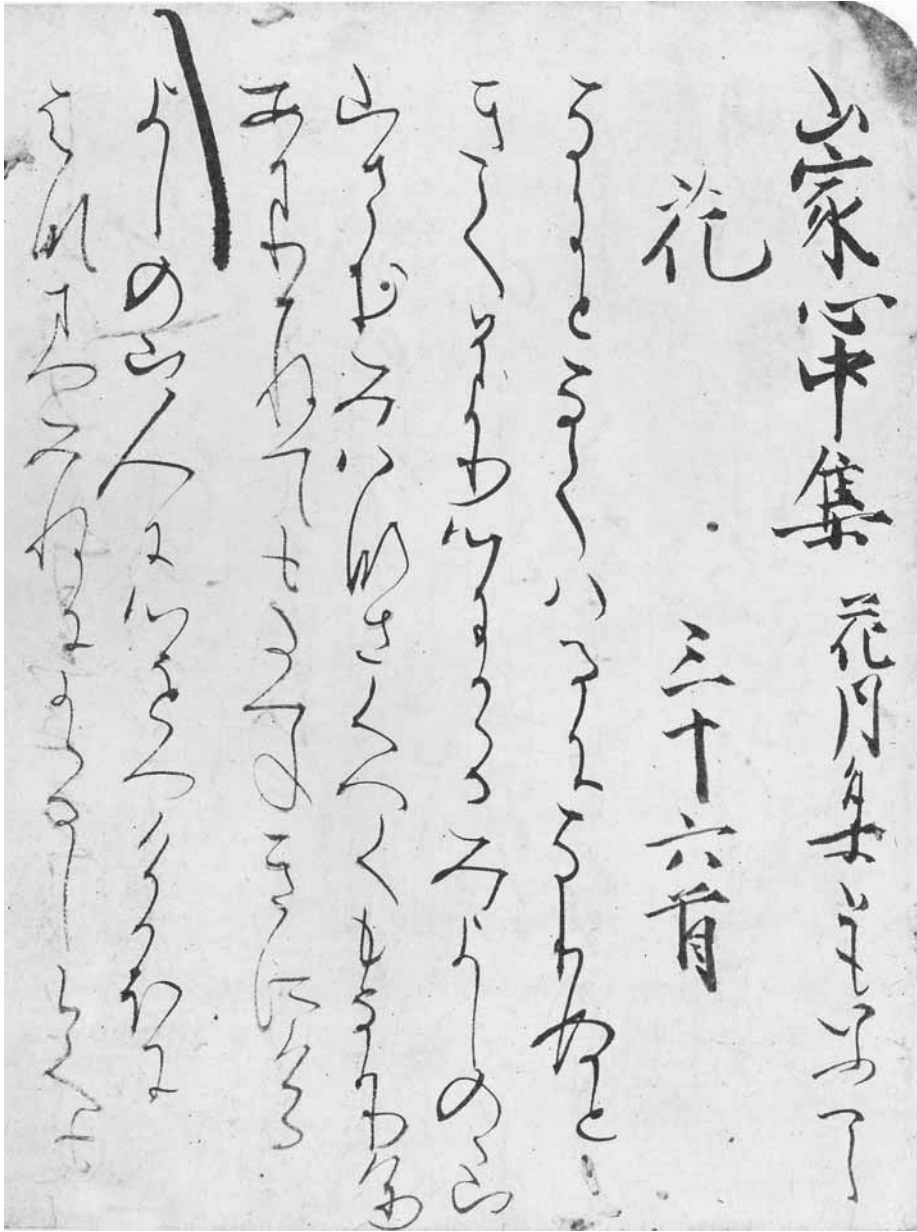 山家心中集 花月集ともいふへし
花 三十六首
なにとなくハるになりぬと
きくひより心にかゝるみよしのゝ山
山さむみ花さくへくもなかりけり
あまりかねてもたつねきにける
よしの山人に心をつけかほに
はなよりさきにかゝるしらくも